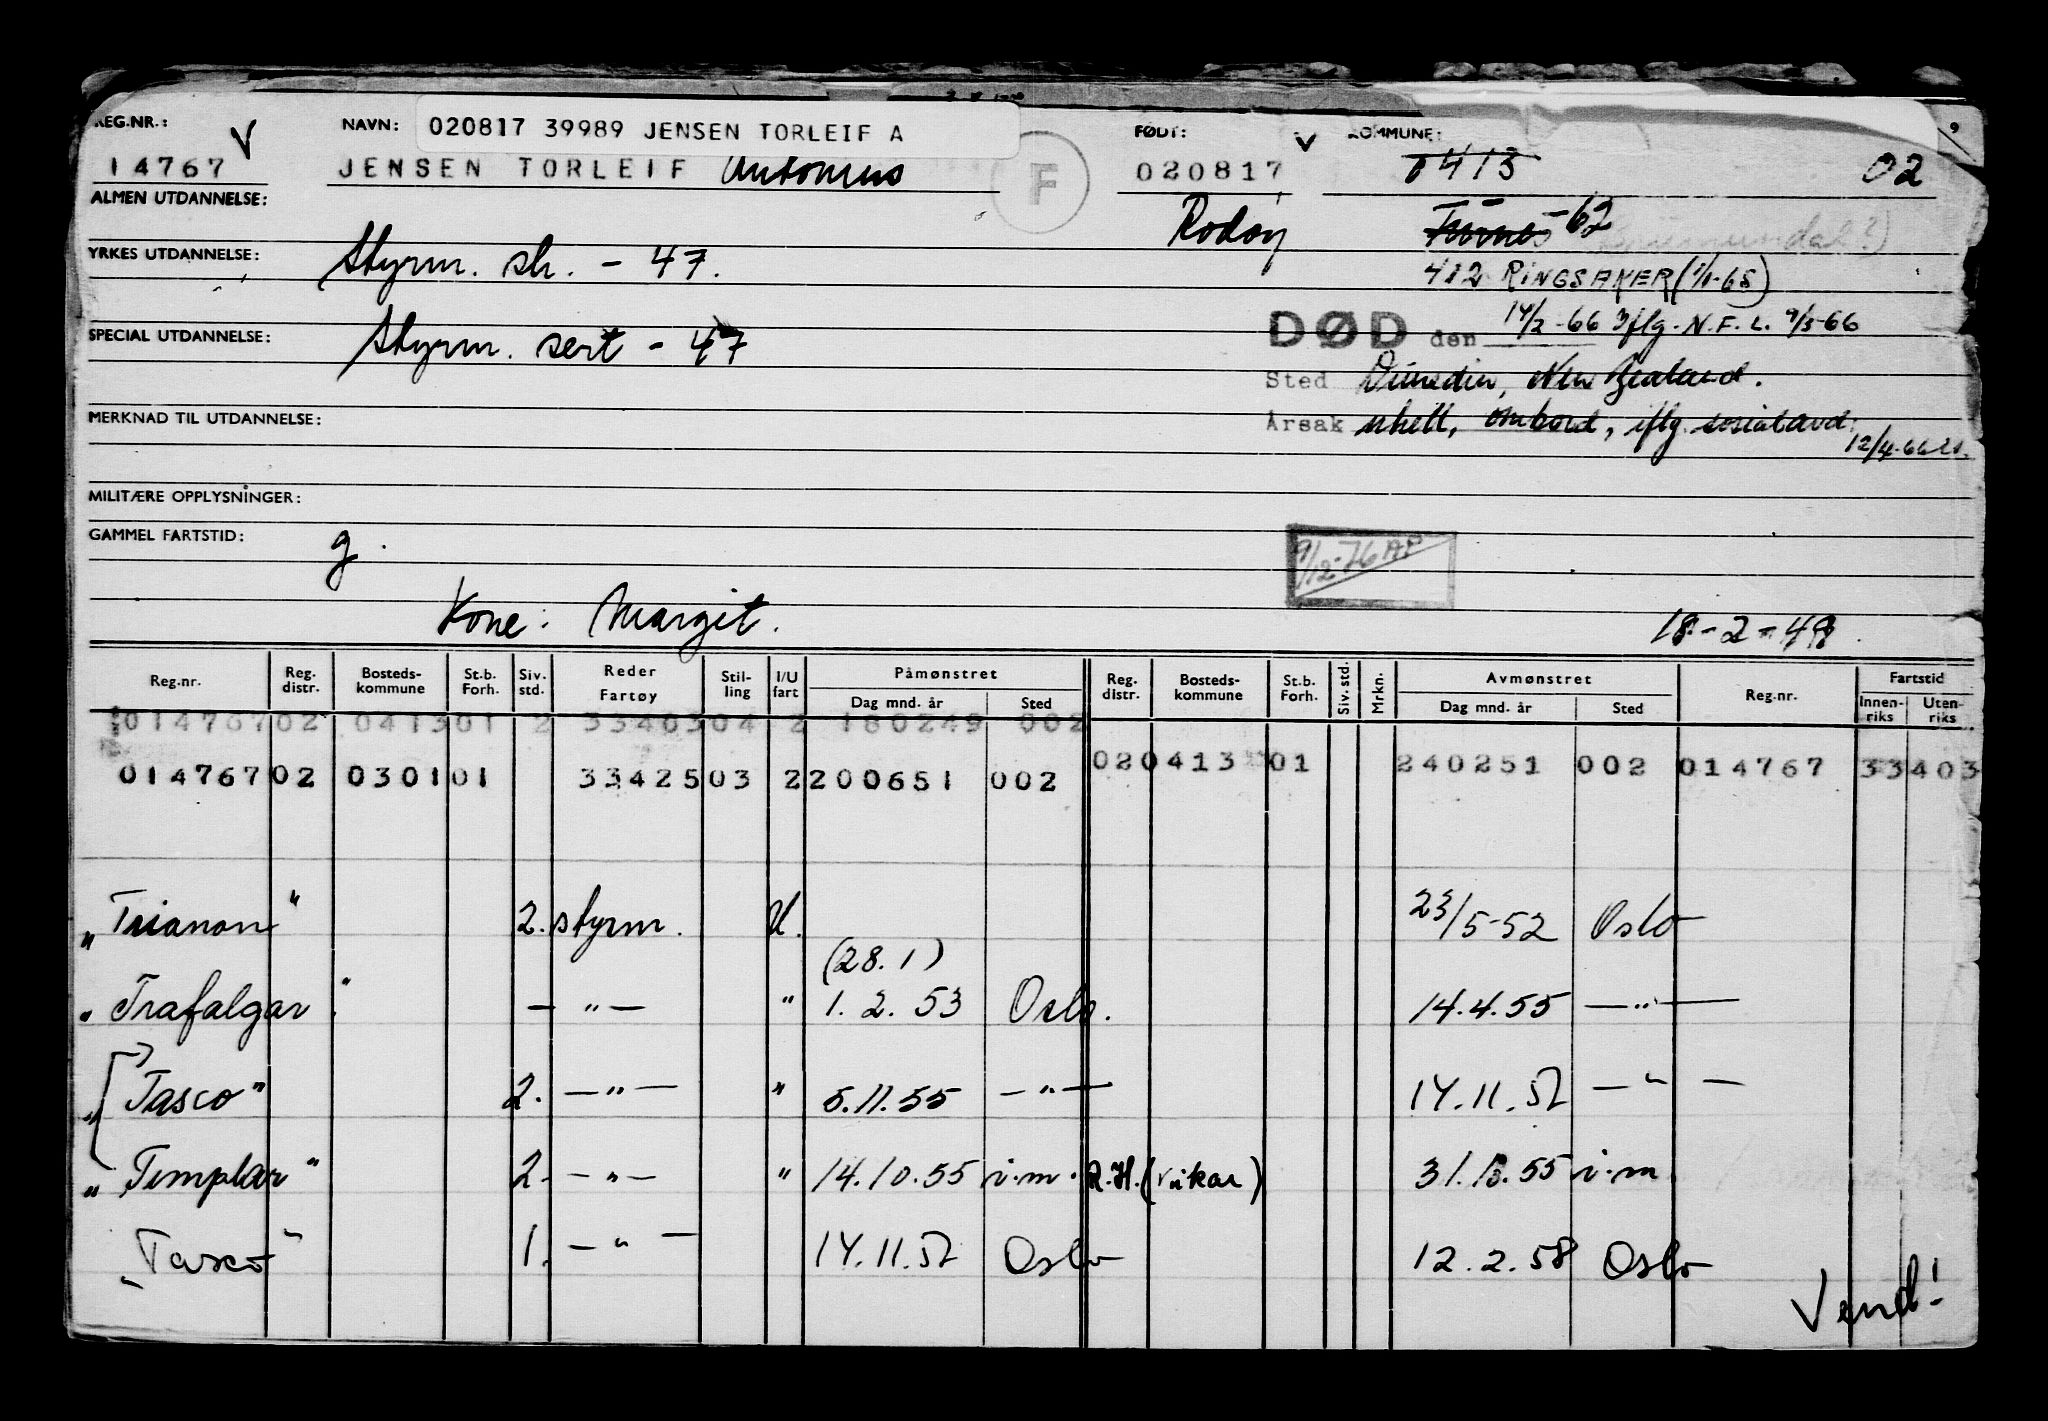 REG.NR.: V NAVN: 020817 39989 JENSEN TORLEIF A FØDT: V KOMMUNE:
14767 JENSEN TORLEIF Antonius F 020817 0413 02
ALMEN UTDANNELSE: Rødøy Furnes -62
YRKES UTDANNELSE: Styrm. sk. - 47. 412 RINGSAKER (1/1-65)
SPECIAL UTDANNELSE: Styrm. sert - 47 DØD den 14/2-66 iflg. N.F.L. 9/3-66
Sted Dunedin, New Zealand.
MERKNAD TIL UTDANNELSE: Årsak uhell, ombord, iflg. sosialavd.
12/4-66
MILITÆRE OPPLYSNINGER:
GAMMEL FARTSTID: g. 9/12-76 AP
Kone: Margit. 18-2-49.
Reg.nr. Reg. distr. Bosteds-kommune St.b. Forh. Siv. std. Reder Fartøy Stil-ling I/U fart Påmønstret Dag mnd. år Sted Reg. distr. Bosteds-kommune St.b. Forh. Siv. std. Mrkn. Avmønstret Dag mnd. år Sted Reg.nr. Fartstid Innen-riks Uten-riks
014767 02 0413 01 2 33403 04 2 180249 002
02 0413 01 240251 002 014767 33403
014767 02 0301 01 33425 03 2 200651 002
„Trianon" 2. styrm. U. 23/5-52 Oslo
(28.1)
„Trafalgar" - " - " 1.2.53 Oslo. 14.4.55 - " -
„Tasco" 2. - " - " 5.11.55 - " - 14.11.57 - " -
„Templar" 2. - " - " 14.10.55 i.m. R.H. (vikar) 31.10.55 i.m
„Tasco" 1. - " - 14.11.57 Oslo 12.2.58 Oslo
Vend!